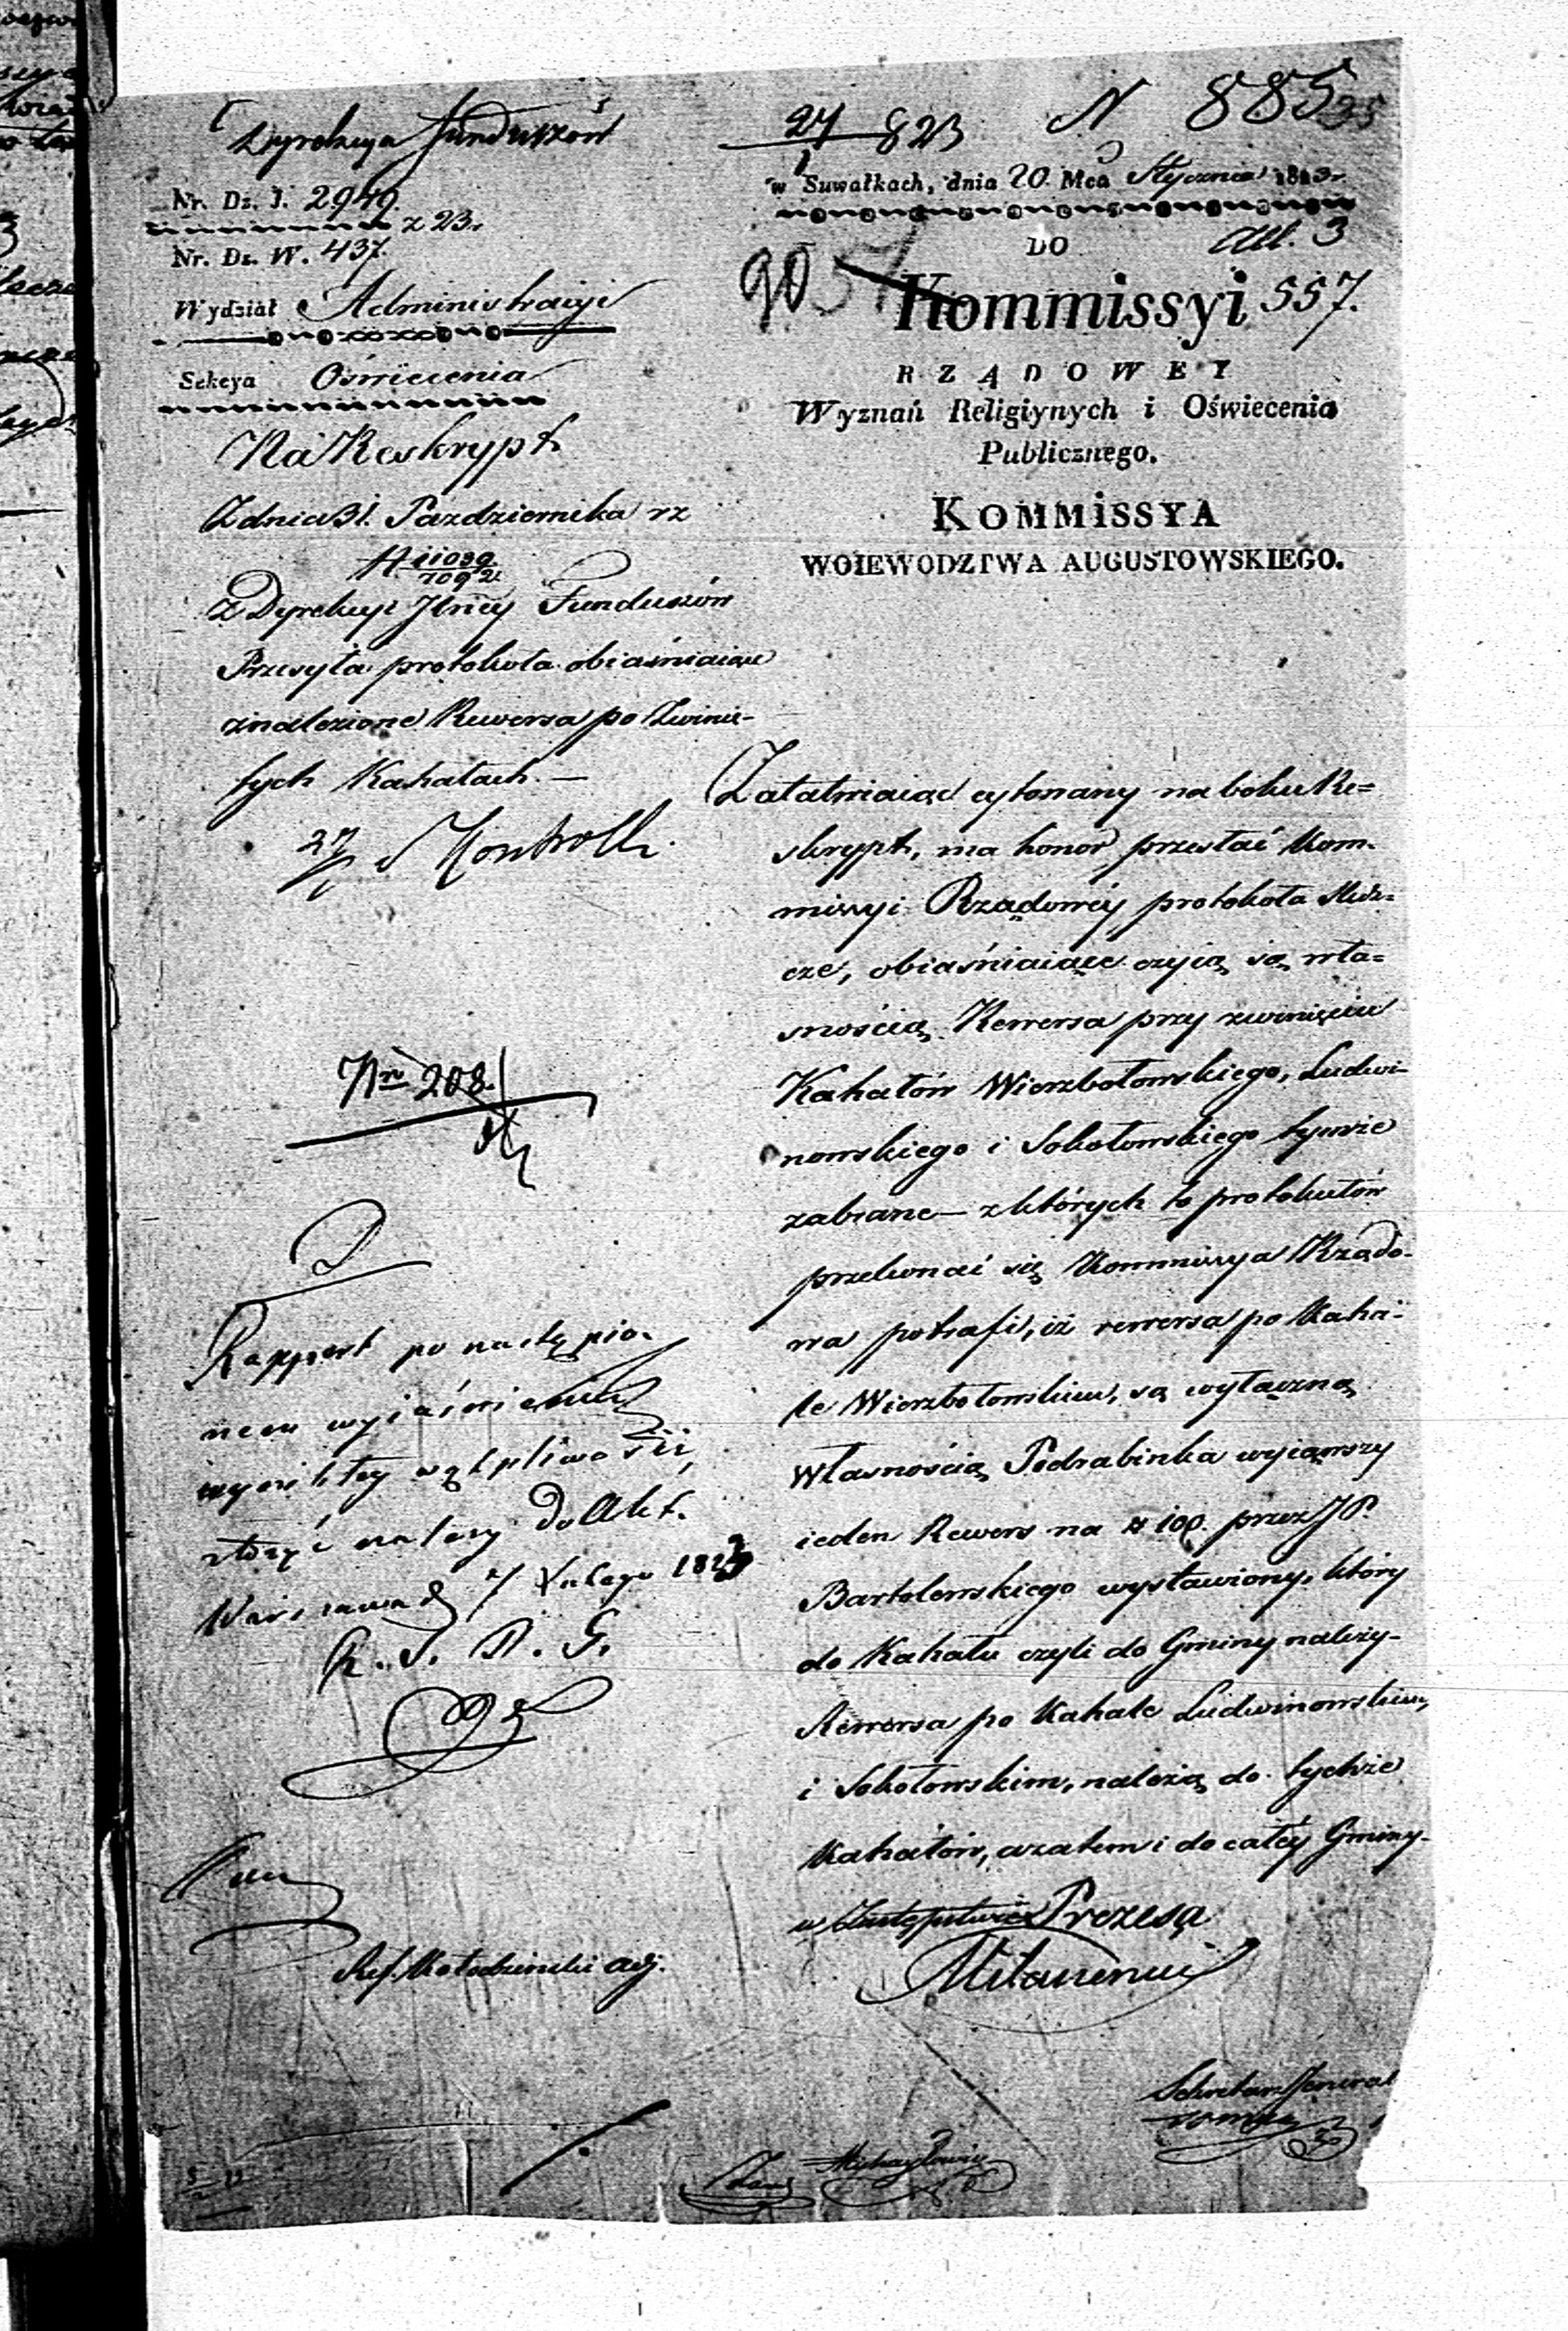 Dyrekcya Funduszów
Nr. Dz. J. 2949.
z 23.
Nr. Dz. W. 437.
Wydział Administracyi
Sekcya Oświecenia
Na Reskrypt
Z dnia 31. Pazdziernika rz
N 11039/7092
z Dyrekcyi Jlney Funduszów
Przesyła protokoła obiaśniaiące
znalezione Rewersa po Zwinię-
tych Kahałach. —
27/1 Kontroll.
Nro 208.
Rapport po nastąpio-
nem wyiaśnieniu
wynikłey wątpliwości,
złożyć należy do Akt.
Warszawa d 7 Lutego 1823
K. J. D. G.
Ref. Kołodzinski adj.
27/1 823 N 885
w Suwałkach, dnia 20. Mca Stycznia 1823r.
DO All. 3
90 57
Kommissyi 557.
RZĄDOWEY
Wyznań Religiynych i Oświecenia
Publicznego.
KOMMISSYA
WOIEWODZTWA AUGUSTOWSKIEGO.
Załatwiaiąc cytowany na boku Re=
skrypt, ma honor przesłać Kom-
missyi Rządowéy protokoła
cze, obiaśniaiące czyią są wła=
snością Rewersa przy zwinięciu
Kahałów Wierzbołowskiego, Ludwi-
nowskiego i Sokołowskiego tymże
zabrane — z których to protokułów
przekonać się Kommissya Rządo-
wa potrafi, iż rewersa po Kaha-
le Wierzbołowskim, są wyłączną
własnością Podrabinka wyiąwszy
ieden Rewers na # 100. przez JP.
Bartolowskiego wystawiony, który
do Kahału czyli do Gminy należy-
Rewersa po Kahale Ludwinowskim,
i Sokołowskim, należą do tychże
Kahałów, a zatem i do całéy Gminy-
w Zastępstwie Prezesa
Sekretarz Jeneral
Michayłowicz